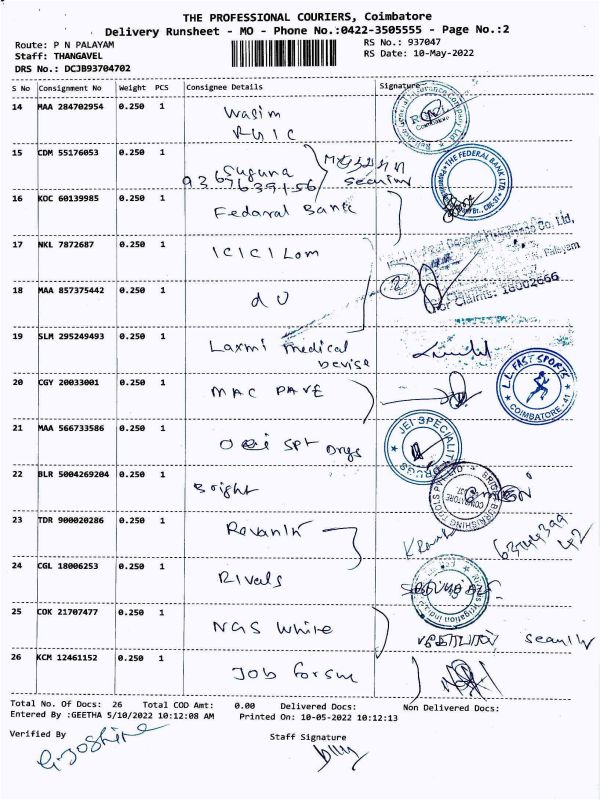 THE PROFESSIONAL COURIERS, Coimbatore
Delivery Runsheet - MO - Phone No.:0422-3505555 - Page No.:2
Route: P N PALAYAM RS No.: 937047
Staff: THANGAVEL RS Date: 10-May-2022
DRS No.: DCJB93704702
S No Consignment No Weight PCS Consignee Details Signature
14 MAA 284702954 0.250 1 Wasim
RGIC
15 CDM 55176053 0.250 1 Suguna
16 KOC 60139985 0.250 1 Fedaral Bank
THE FEDERAL BANK LTD
17 NKL 7872687 0.250 1 ICICI Lom
For Claims: 18002666
18 MAA 857375442 0.250 1 do
19 SLM 295249493 0.250 1 Laxmi medical
Devise
20 CGY 20033001 0.250 1 MAC PAVE
L.L. FAST SPORTS
COIMBATORE-41
21 MAA 566733586 0.250 1 Spt Drugs
JEI SPECIALITY DRUGS
22 BLR 5004269204 0.250 1 Bright
23 TDR 900020286 0.250 1 Revanth
24 CGL 18006253 0.250 1 Rivals
25 COK 21707477 0.250 1 NGS White
26 KCM 12461152 0.250 1 Job forsm
Total No. Of Docs: 26 Total COD Amt: 0.00 Delivered Docs: Non Delivered Docs:
Entered By :GEETHA 5/10/2022 10:12:08 AM Printed On: 10-05-2022 10:12:13
Verified By Staff Signature